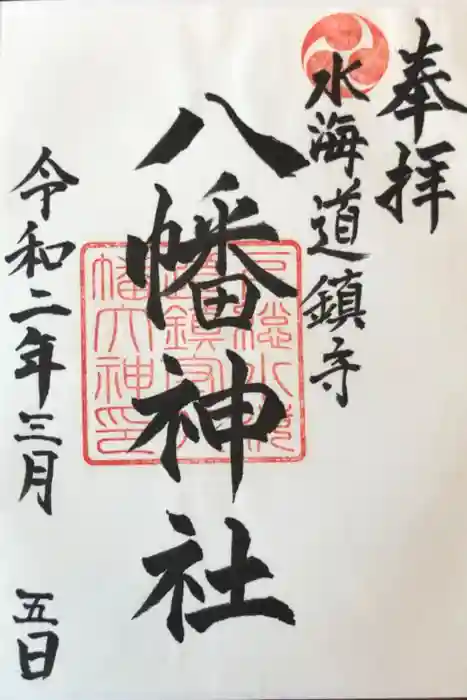 奉拝
水海道鎮守
八幡神社
令和二年三月 五日
下総水海
道鎮守八
幡大神印